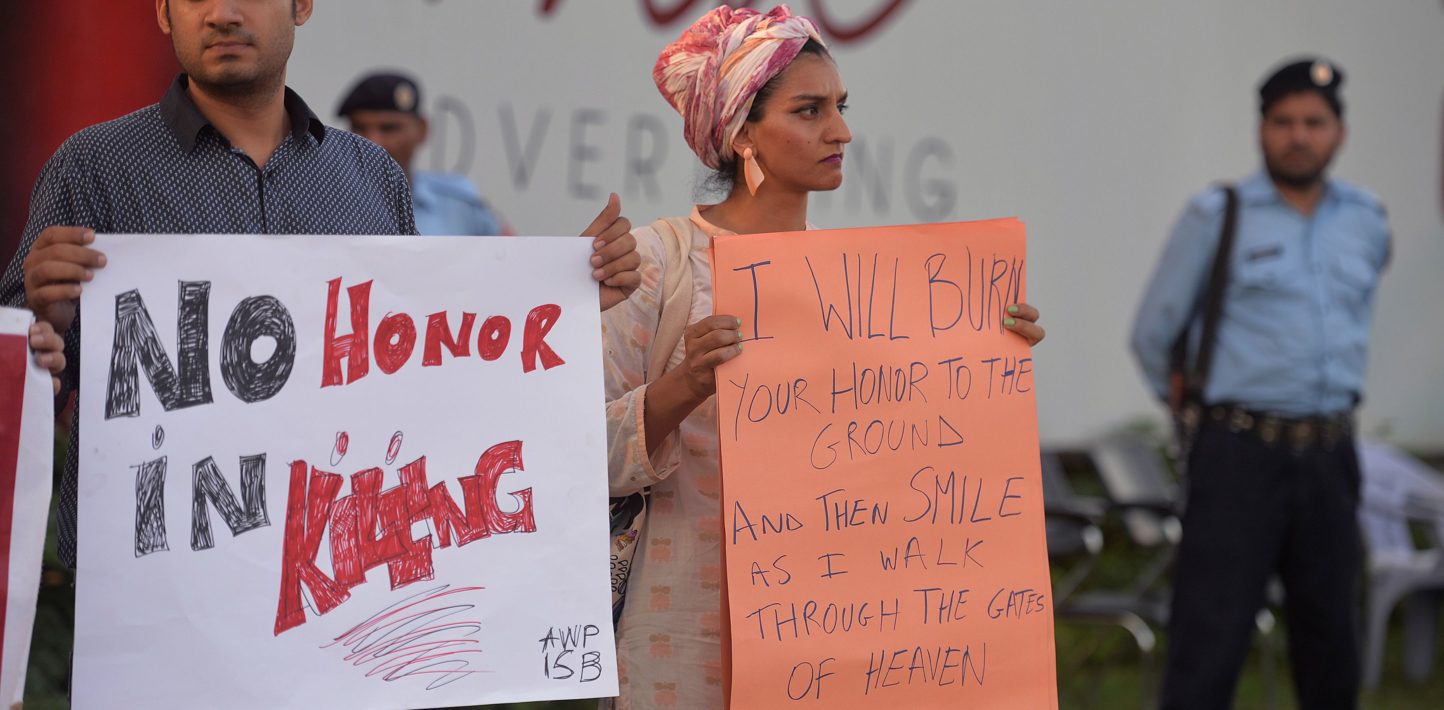 DVER ING
NO HONOR
iN
KiLLiNG
AWP
ISB
I WILL BURN
YOUR HONOR TO THE
GROUND
AND THEN SMILE
AS I WALK
THROUGH THE GATES
OF HEAVEN